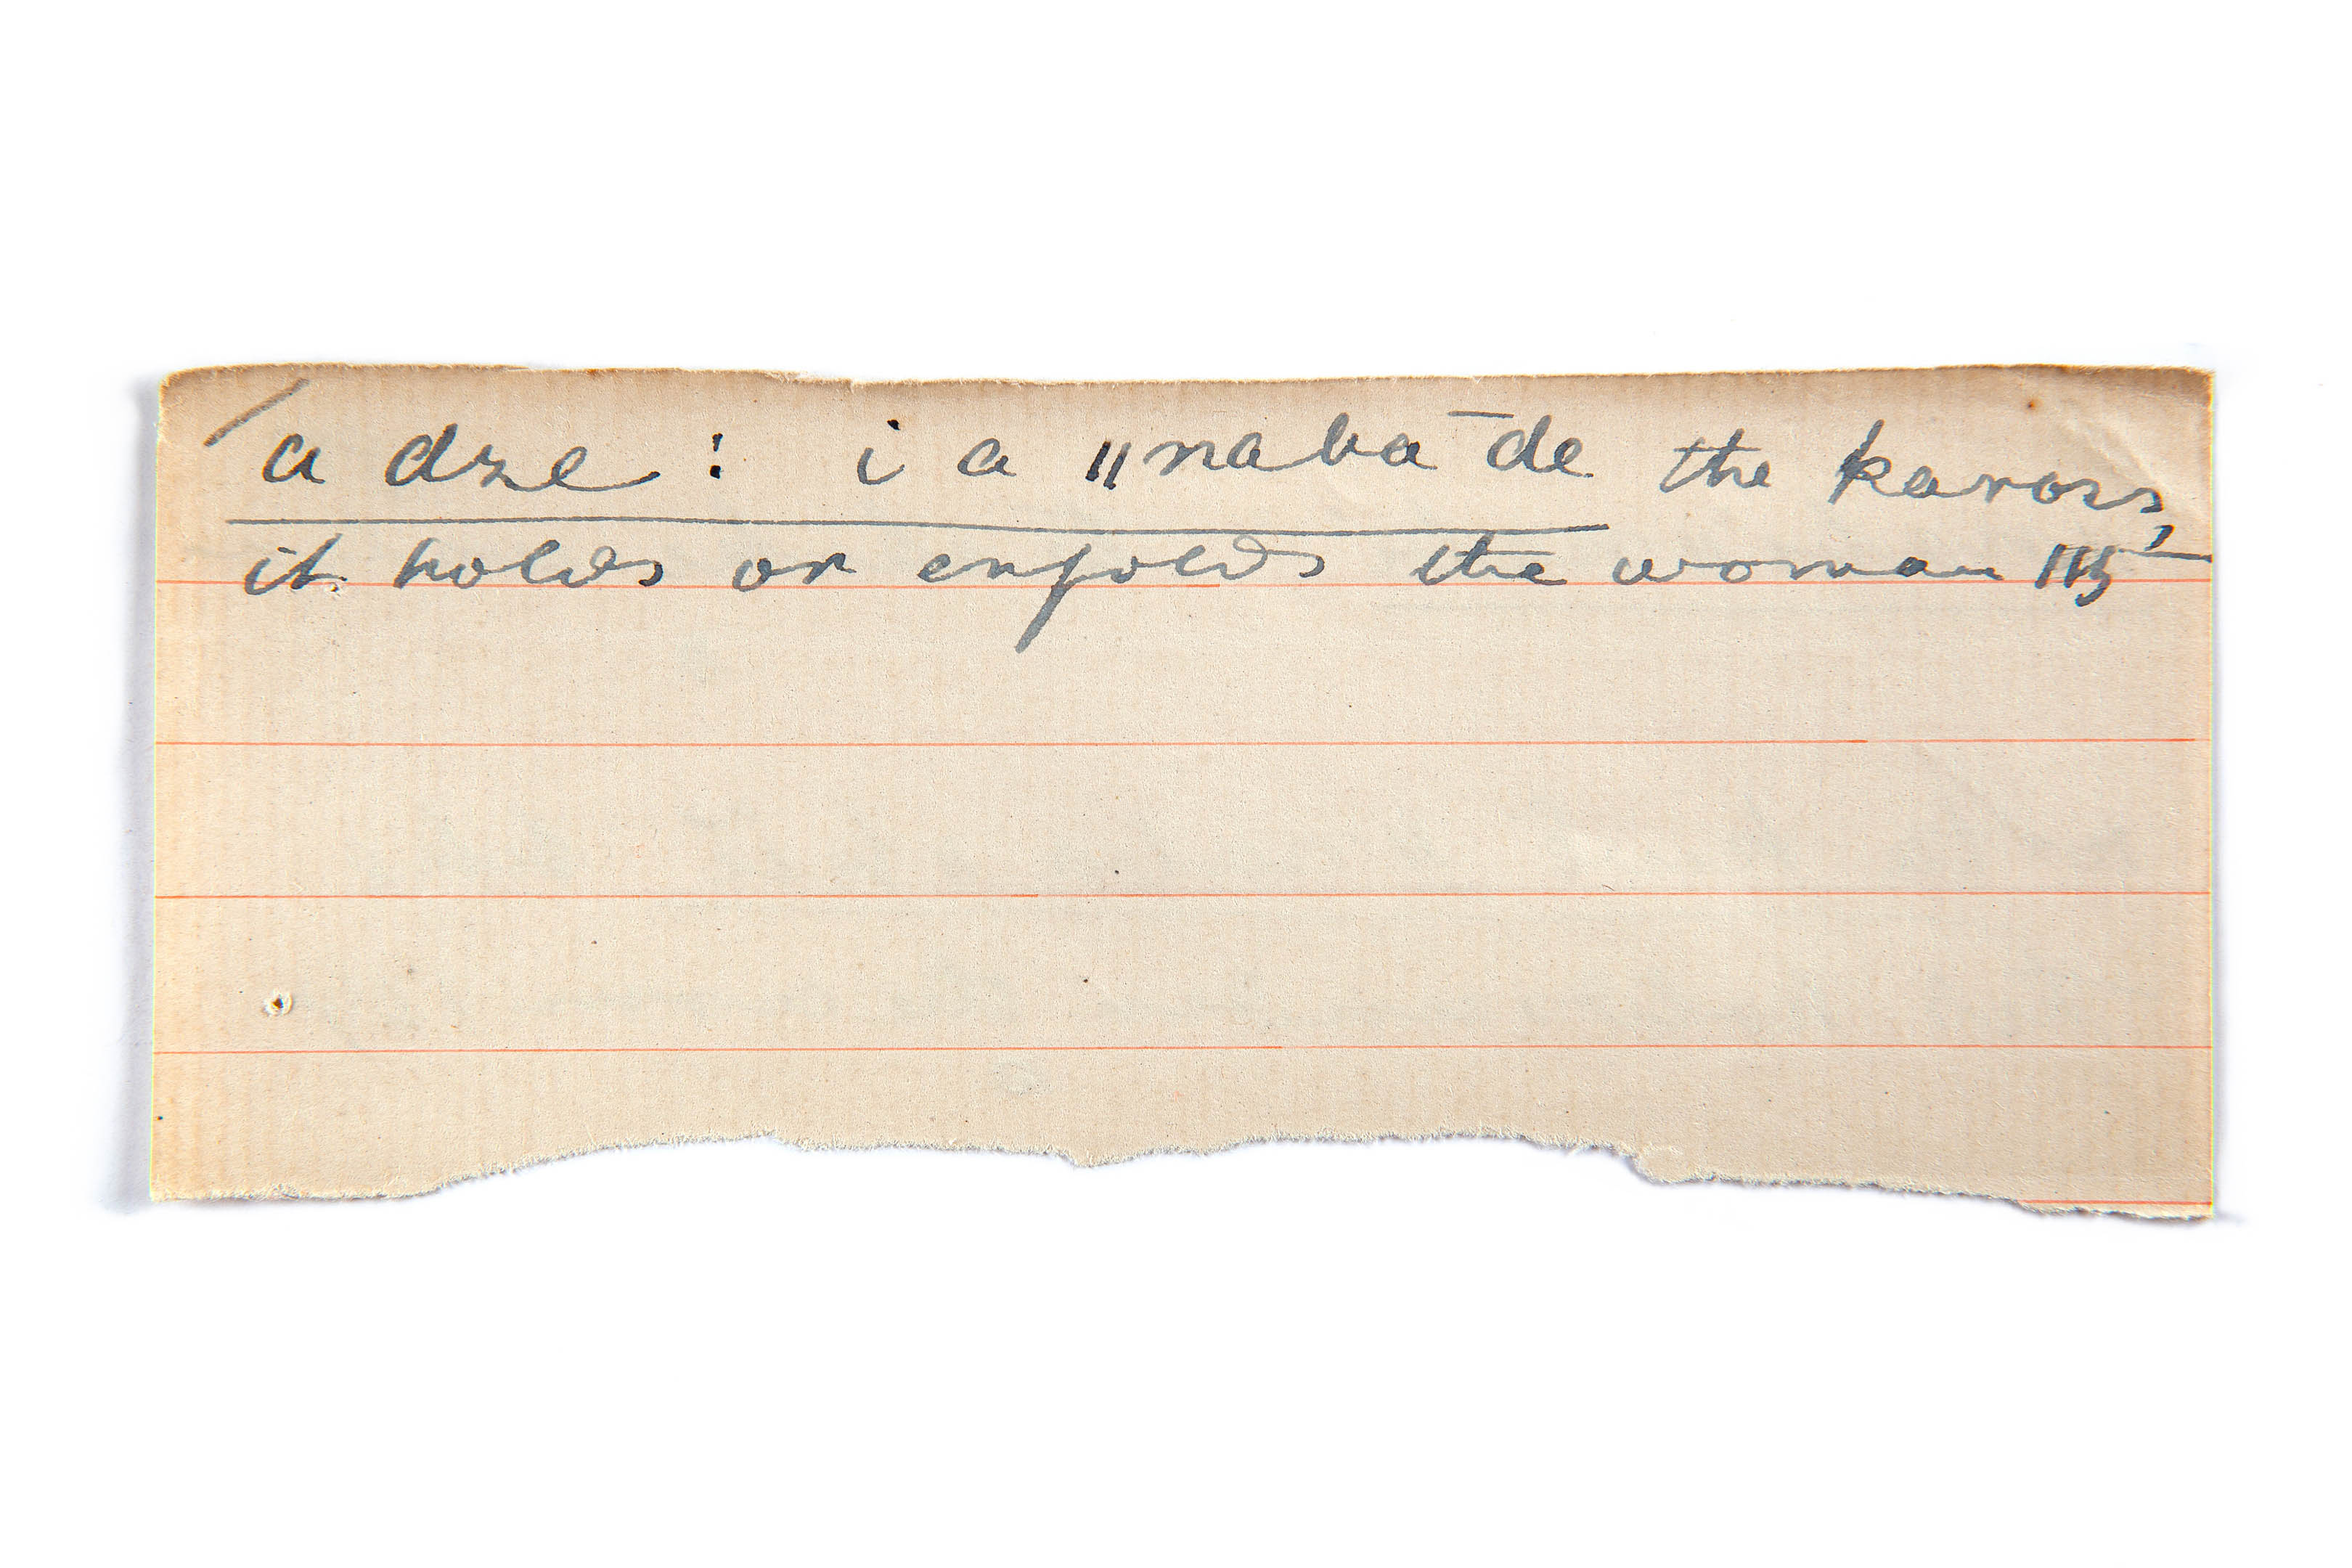 /a dze : i a ǁnaba de the kaross,
it holds or enfolds the woman